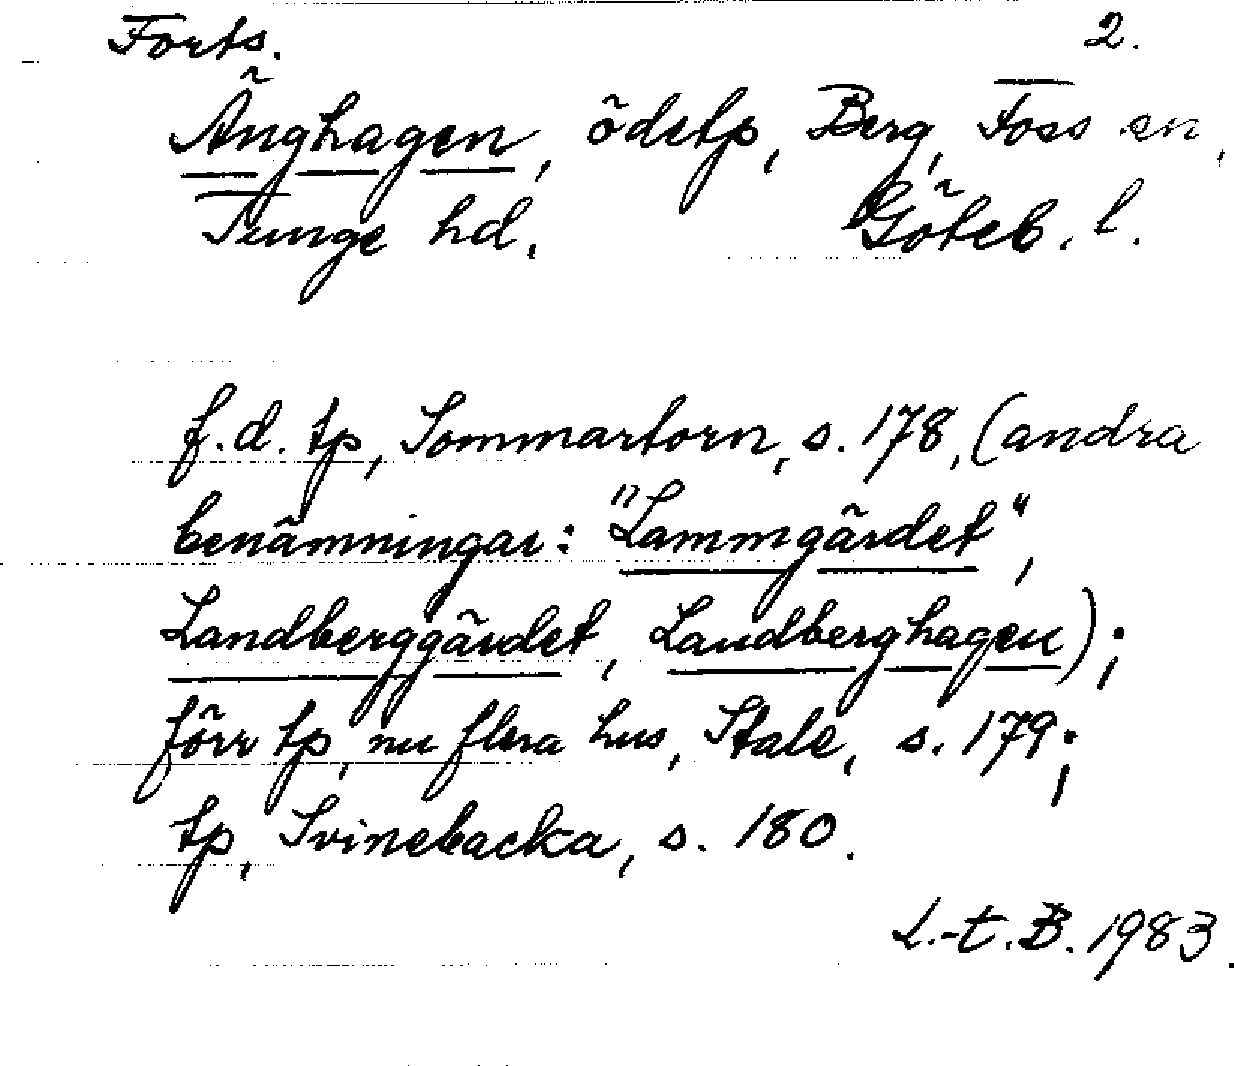 Forts. 2.
Änghagen, ödetp, Berg, Foss sn,
Tunge hd. Göteb. l.
f.d. tp, Sommartorn, s. 178, (andra
benämningar: "Lammgärdet",
Landberggärdet, Landberghagen);
förr tp, nu flera hus, Stale, s. 179;
tp, Svinebacka, s. 180.
L.-t. B. 1983.